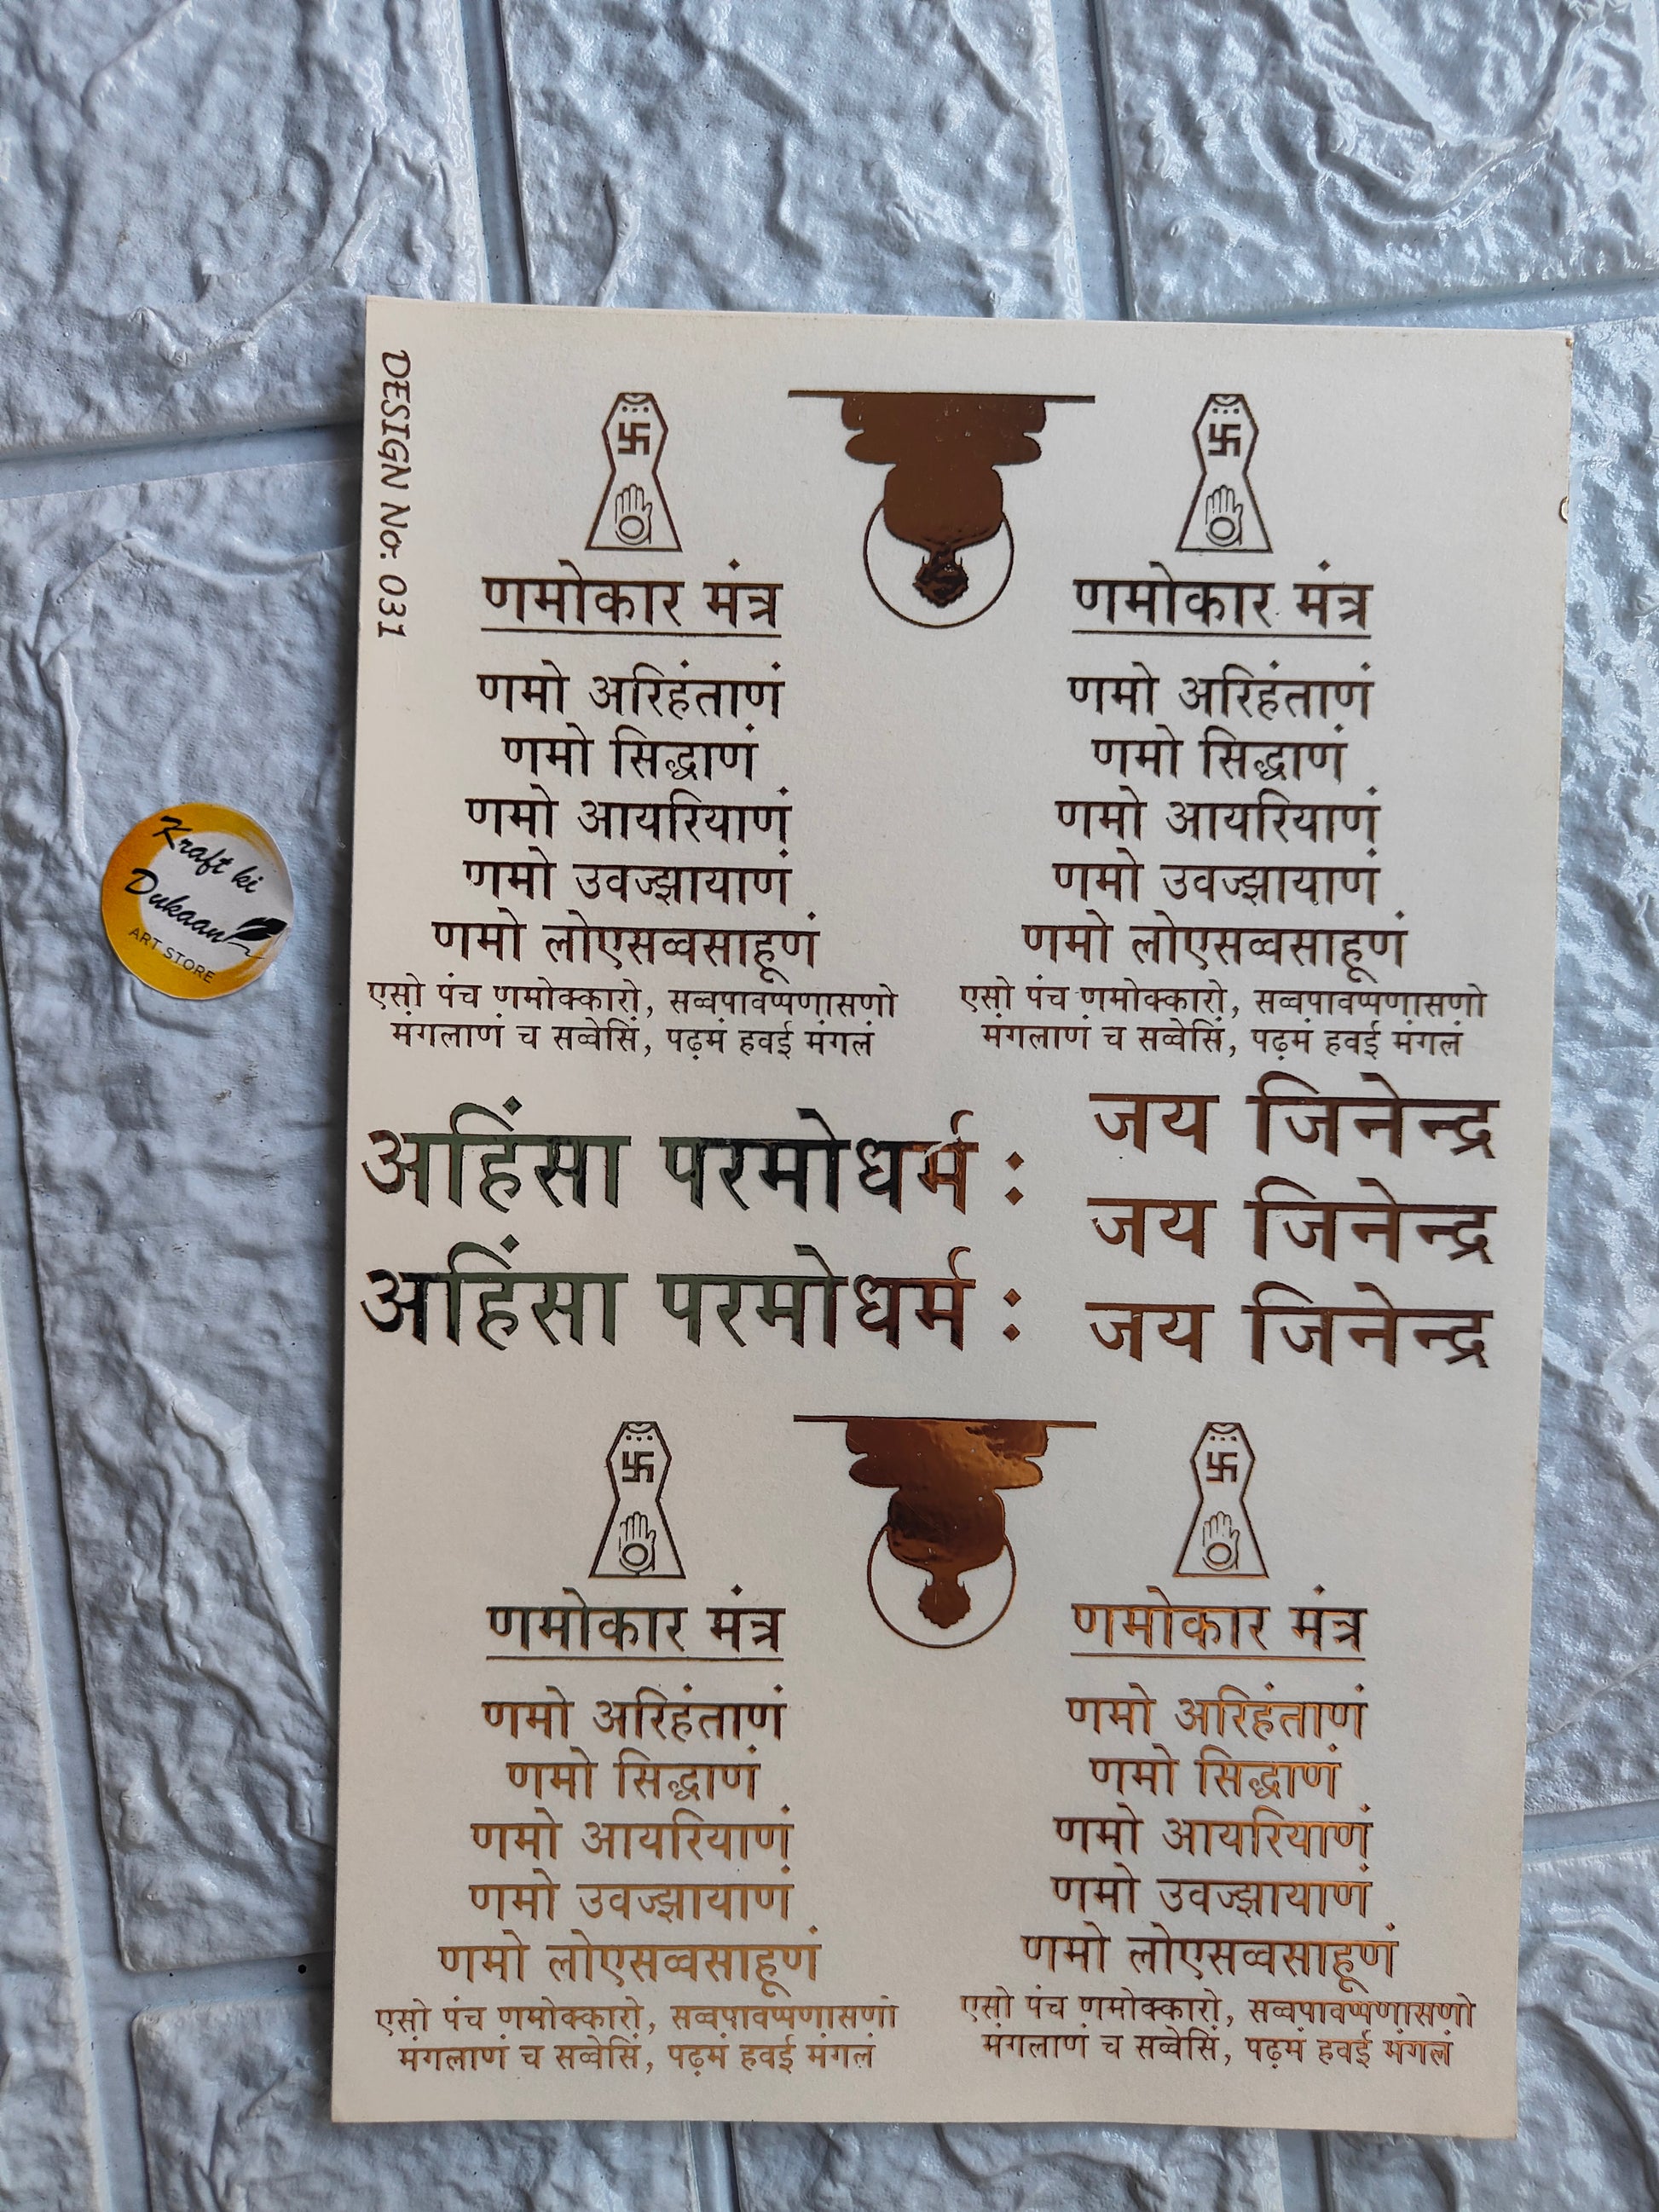 DESIGN No. 031
णमोकार मंत्र
णमो अरिहंताणं
णमो सिद्धाणं
णमो आयरियाणं
णमो उवज्झायाणं
णमो लोएसव्वसाहूणं
एसो पंच णमोक्कारो, सव्वपावप्पणासणो
मंगलाणं च सव्वेसिं, पढ़मं हवई मंगलं
णमोकार मंत्र
णमो अरिहंताणं
णमो सिद्धाणं
णमो आयरियाणं
णमो उवज्झायाणं
णमो लोएसव्वसाहूणं
एसो पंच णमोक्कारो, सव्वपावप्पणासणो
मंगलाणं च सव्वेसिं, पढ़मं हवई मंगलं
Kraft ki
Dukaan
ART STORE
अहिंसा परमोधर्म :
अहिंसा परमोधर्म :
जय जिनेन्द्र
जय जिनेन्द्र
जय जिनेन्द्र
णमोकार मंत्र
णमो अरिहंताणं
णमो सिद्धाणं
णमो आयरियाणं
णमो उवज्झायाणं
णमो लोएसव्वसाहूणं
एसो पंच णमोक्कारो, सव्वपावप्पणासणो
मंगलाणं च सव्वेसिं, पढ़मं हवई मंगलं
णमोकार मंत्र
णमो अरिहंताणं
णमो सिद्धाणं
णमो आयरियाणं
णमो उवज्झायाणं
णमो लोएसव्वसाहूणं
एसो पंच णमोक्कारो, सव्वपावप्पणासणो
मंगलाणं च सव्वेसिं, पढ़मं हवई मंगलं